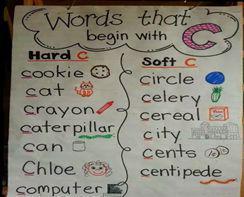 Words that
begin with C
Hard C
cookie
cat
crayon
caterpillar
can
Chloe
computer
Soft C
circle
celery
cereal
city
cents
centipede